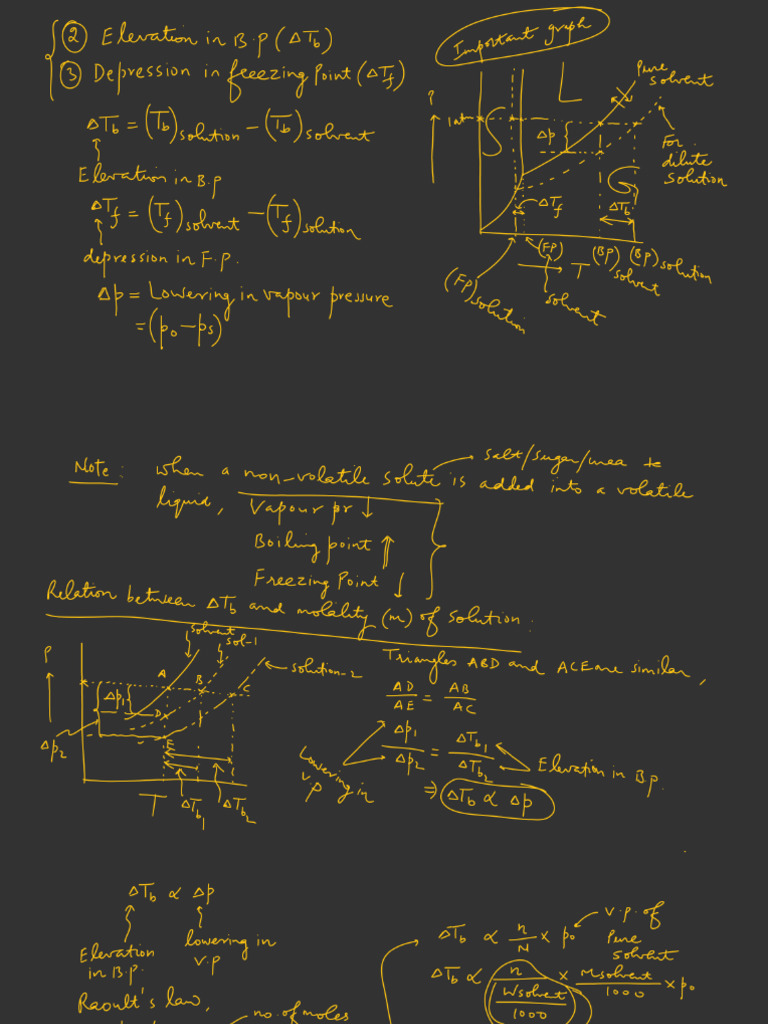 ② Elevation in B.p (ΔTb)
③ Depression in freezing Point (ΔTf)
ΔTb = (Tb)solution − (Tb)solvent
Elevation in B.p
ΔTf = (Tf)solvent − (Tf)solution
depression in F.p.
Δp = Lowering in vapour pressure
= (p₀ − ps)
Important graph
P
1 atm
S
L
G
Pure solvent
For dilute solution
Δp
ΔTf
ΔTb
T
(FP)solution
(FP)solvent
(BP)solvent
(BP)solution
Note: when a non-volatile solute is added into a volatile
salt/sugar/urea
liquid, Vapour pr ↓
Boiling point ↑
Freezing Point ↓
Relation between ΔTb and molality (m) of solution:
P
solvent
sol-1
solution-2
A
B
C
D
E
Δp₁
Δp₂
T
ΔTb₁
ΔTb₂
Triangles ABD and ACE are similar,
AD/AE = AB/AC
Δp₁/Δp₂ = ΔTb₁/ΔTb₂
Lowering in v.p
Elevation in B.p.
⇒ ΔTb ∝ Δp
ΔTb ∝ Δp
Elevation in B.p.
lowering in v.p
Raoult's law,
no. of moles
ΔTb ∝ n/N × p₀
v.p. of Pure solvent
ΔTb ∝ n/(Wsolvent/1000) × Msolvent/1000 × p₀